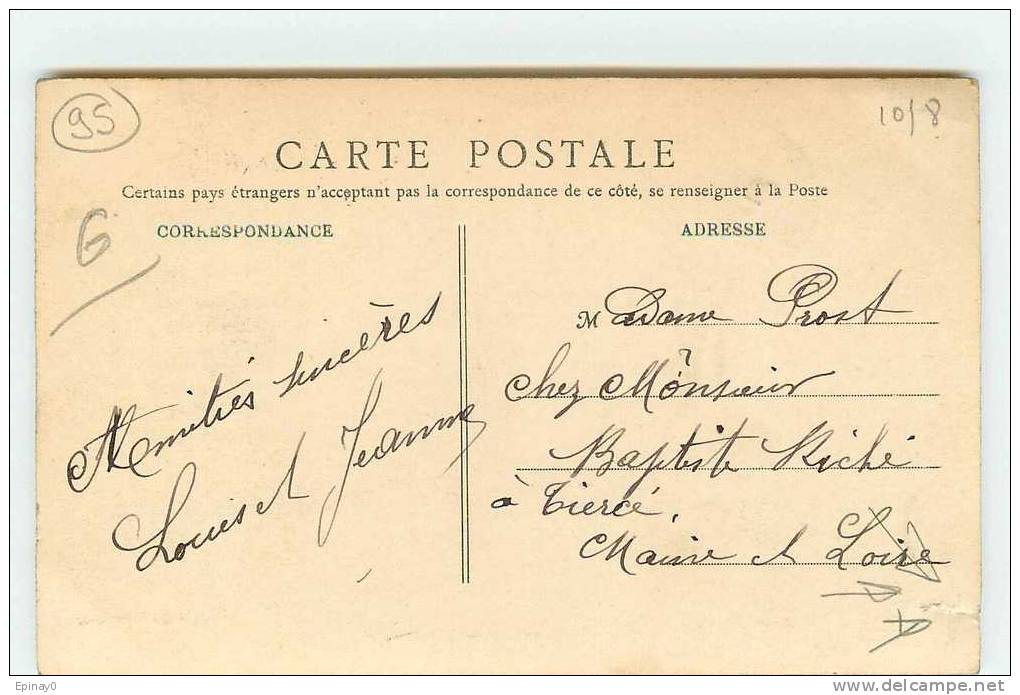 95
10/8
CARTE POSTALE
Certains pays étrangers n'acceptant pas la correspondance de ce côté, se renseigner à la Poste
G
CORRESPONDANCE
Amitiés sincères
Louis et Jeanne
ADRESSE
Madame Prost
chez Monsieur
Baptiste Riché
à Tiercé,
Maine et Loire
Epinay0
www.delcampe.net